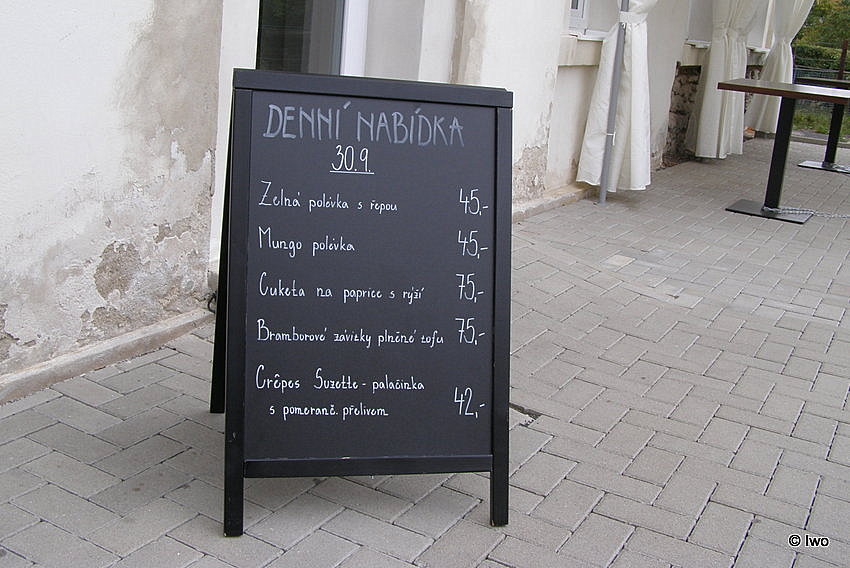 DENNÍ NABÍDKA
30.9.
Zelná polévka s řepou 45,-
Mungo polévka 45,-
Cuketa na paprice s rýží 75,-
Bramborové závitky plněné tofu 75,-
Crêpes Suzette - palačinka
s pomeranč. přelivem 42,-
© Iwo